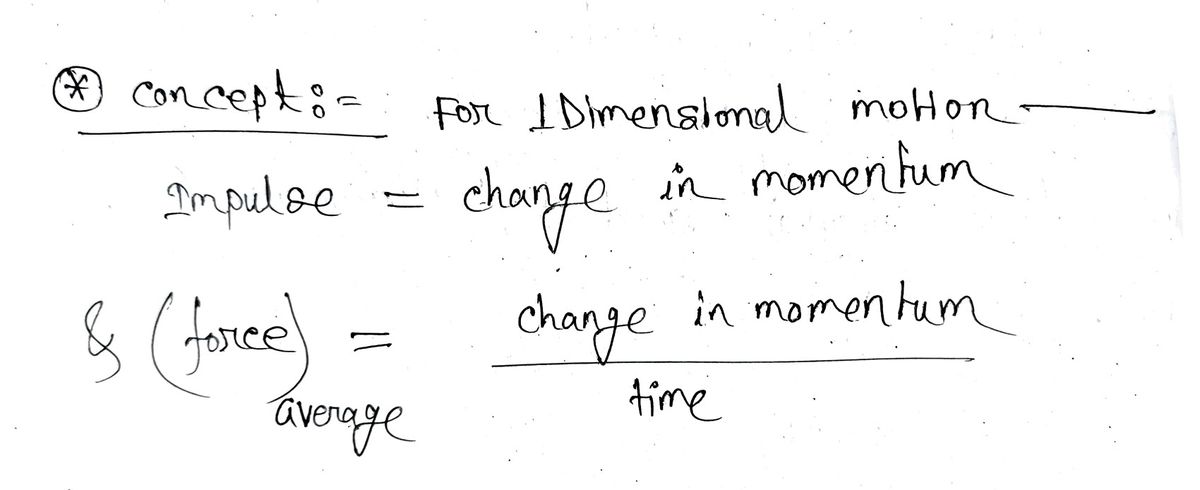 * concept:- For 1 Dimensional motion —
Impulse = change in momentum
& (force) average = change in momentum / time